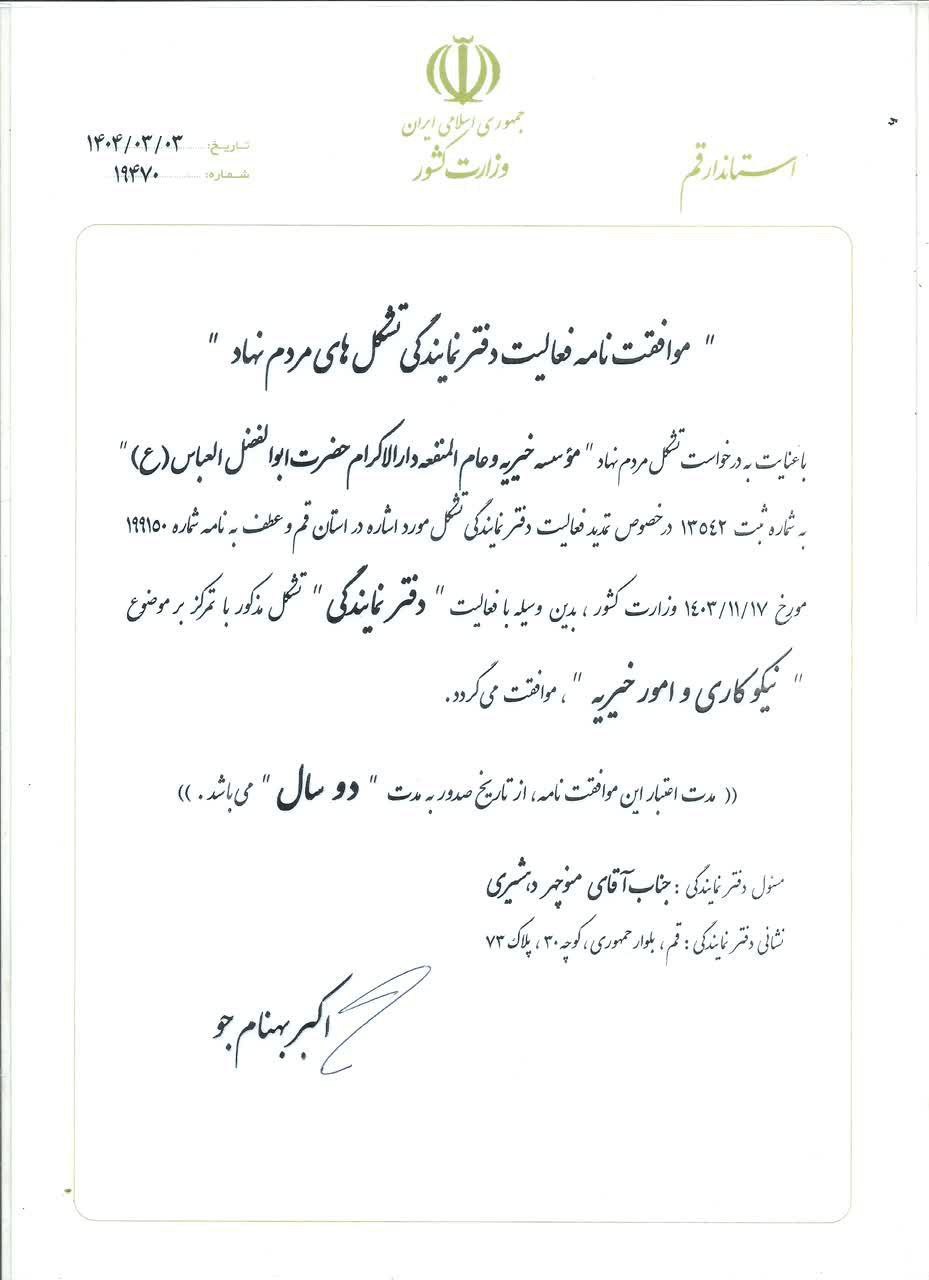 جمهوری اسلامی ایران
وزارت کشور
استاندار قم
تاریخ: ۱۴۰۴/۰۳/۰۳
شماره: ۱۹۴۷۰
" موافقت نامه فعالیت دفتر نمایندگی تشکل های مردم نهاد "
با عنایت به درخواست تشکل مردم نهاد " مؤسسه خیریه و عام المنفعه دارالاکرام حضرت ابوالفضل العباس (ع) "
به شماره ثبت ۱۳۵۴۲ درخصوص تمدید فعالیت دفتر نمایندگی تشکل مورد اشاره در استان قم و عطف به نامه شماره ۱۹۹۱۵۰
مورخ ۱۴۰۳/۱۱/۱۷ وزارت کشور ، بدین وسیله با فعالیت " دفتر نمایندگی " تشکل مذکور با تمرکز بر موضوع
" نیکوکاری و امور خیریه " ، موافقت می گردد .
(( مدت اعتبار این موافقت نامه، از تاریخ صدور به مدت " دو سال " می باشد . ))
مسئول دفتر نمایندگی : جناب آقای منوچهر دهشیری
نشانی دفتر نمایندگی : قم ، بلوار جمهوری ، کوچه ۳۰ ، پلاک ۷۳
اکبر بهنام جو